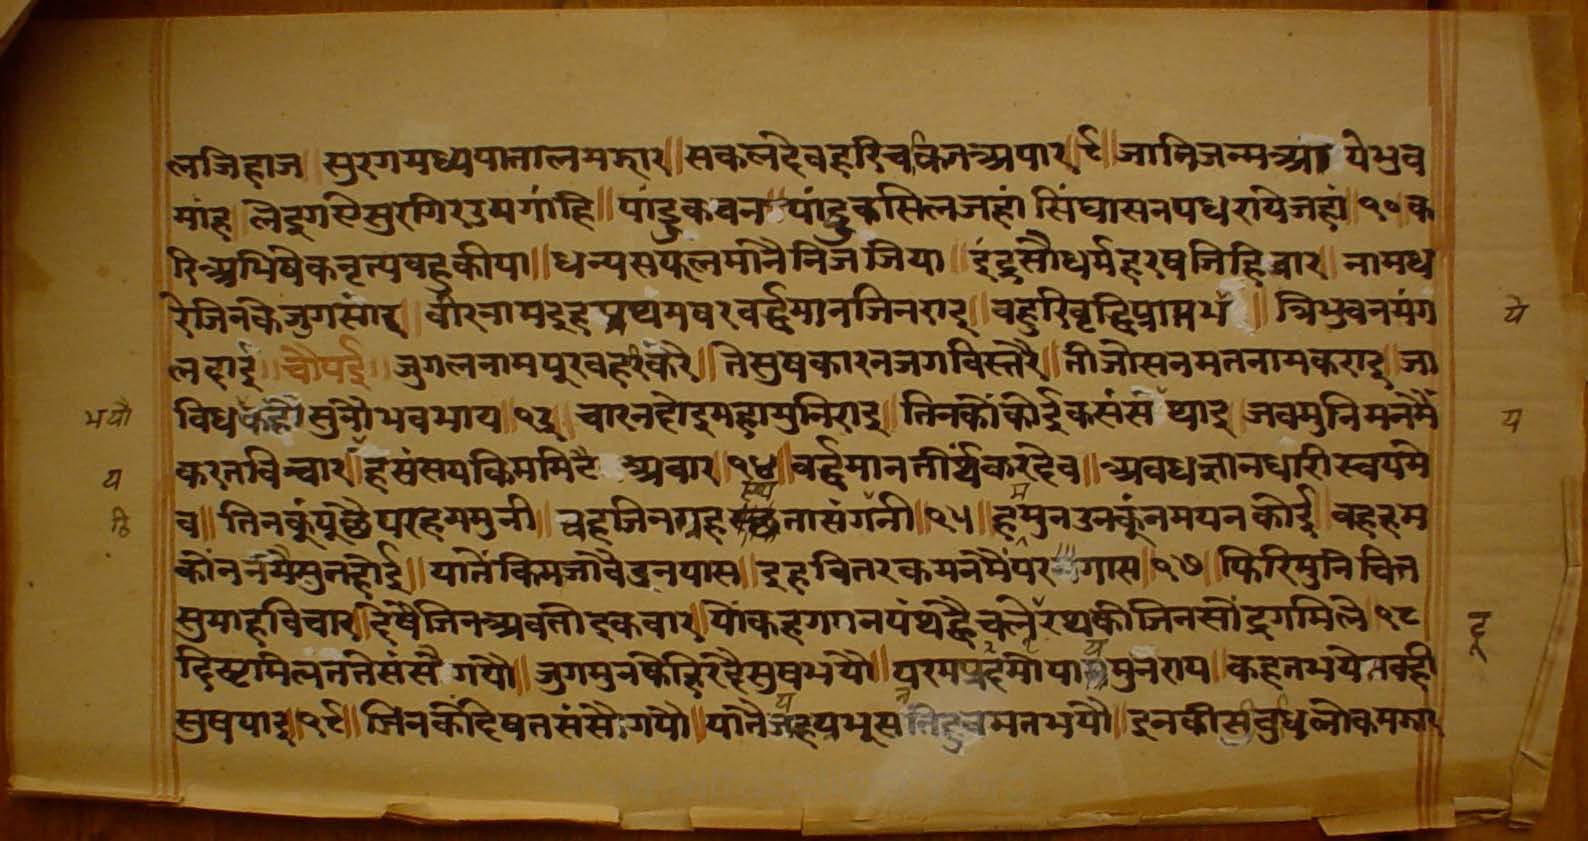 लजिहाज ॥ सुरगमध्यपातालमझार ॥ सकलदेवहरिचक्रतअपार ९ ॥ जानिजन्मआ येभुव
मांह ॥ लेइगएैसुरगिरउमगांहि ॥ पांडुकवन ॥ पांडुकसिलजहां सिंघासनपधरायेजहां ॥ १० क
रिअभिषेकनृत्यबहुकीया ॥ धन्यसफलमांनैनिजजिया ॥ इंद्रसौधर्महरषजिहिबार ॥ नामध
रेजिनकेजुगसार ॥ वीरनामइह प्रथमषरवर्द्धमानजिनराइ ॥ बहुरिवृद्धि ॥ त्रिभुवनमंग
लहाई ॥ चौपई ॥ जुगलनामपूरवहरिकरै ॥ तेसुषकारनजगविस्तरै ॥ तीजौसनमतनामकराइ ॥ जा
विधकहौसुनौभवभाय ॥ चारनहोइमहामुनिराइ ॥ तिनकौकोईकसंसै थाइ ॥ जबमुनिमनमैं
करतविचार ॥ हसंसयकिममिटै अबार ॥ १४ ॥ वर्द्धमानतीर्थंकरदेव ॥ अवधज्ञानधारीस्वयमे
व ॥ तिनकूंपूछैपरहममुनी ॥ वहजिनग्रह नासंगनी ॥ १५ ॥ हमुनउनकूंनमयनकोई ॥ वहहम
कौननमैसुतहोई ॥ यातेंकिमजावैउनपास ॥ इहवितरकमनमैंपर गास ॥ १७ ॥ फिरिमुनिचित्त
सुमाहविचार ॥ देषैजिनअवतौइकबार ॥ यौंकहगगनपंथह्वैचले रथकीजिनसौंद्रगमिले १८
द्रिष्टमिलतनेसंसैगयौ ॥ जुगमुनकै सुषभयौ ॥ परम मुनराय ॥ कहतभये
सुषपाइ ॥ १९ ॥ जिनकौंदेषतसंसैगयौ ॥ यातै मतभयौ ॥ इनकी लोकमझार
ये
य
भयौ
य